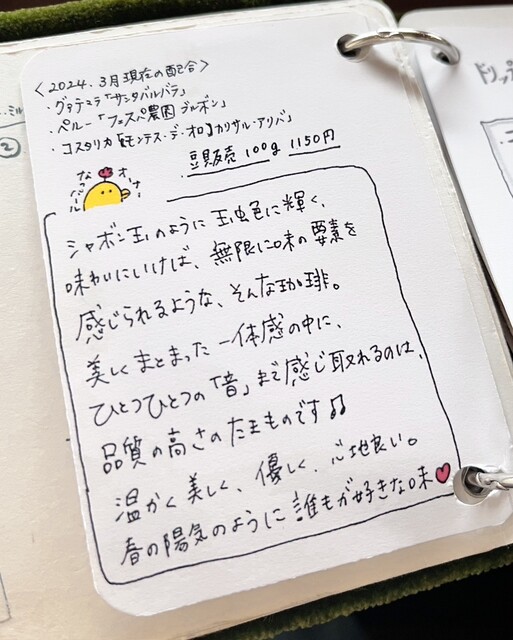 〈2024.3月現在の配合〉
・グァテマラ「サンタバルバラ」
・ペルー「フェスパ農園 ブルボン」
・コスタリカ「モンテス・デ・オロ」カリサル・アリバ」
・豆販売 100g 1150円
シャボン玉のように玉虫色に輝く、
味わいにいけば、無限に味の要素を
感じられるような、そんな珈琲。
美しくまとまった一体感の中に、
ひとつひとつの「音」まで感じ取れるのは、
品質の高さのたまものです♫
温かく美しく、優しく、心地良い。
春の陽気のように誰もが好きな味♥
ドリップ
②